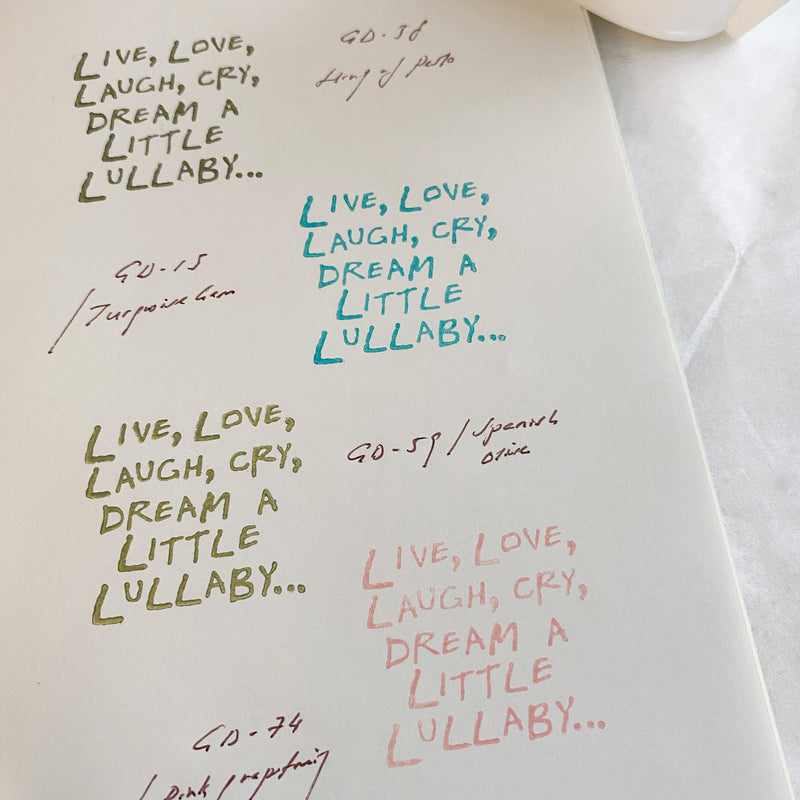 LIVE, LOVE,
LAUGH, CRY,
DREAM A
LITTLE
LULLABY...
GD-38
of Pesto
LIVE, LOVE,
LAUGH, CRY,
DREAM A
LITTLE
LULLABY...
GD-15
/Turquoise Gem
LIVE, LOVE,
LAUGH, CRY,
DREAM A
LITTLE
LULLABY...
GD-59 / Spanish
Olive
LIVE, LOVE,
LAUGH, CRY,
DREAM A
LITTLE
LULLABY...
GD-74
/ Pink grapefruit